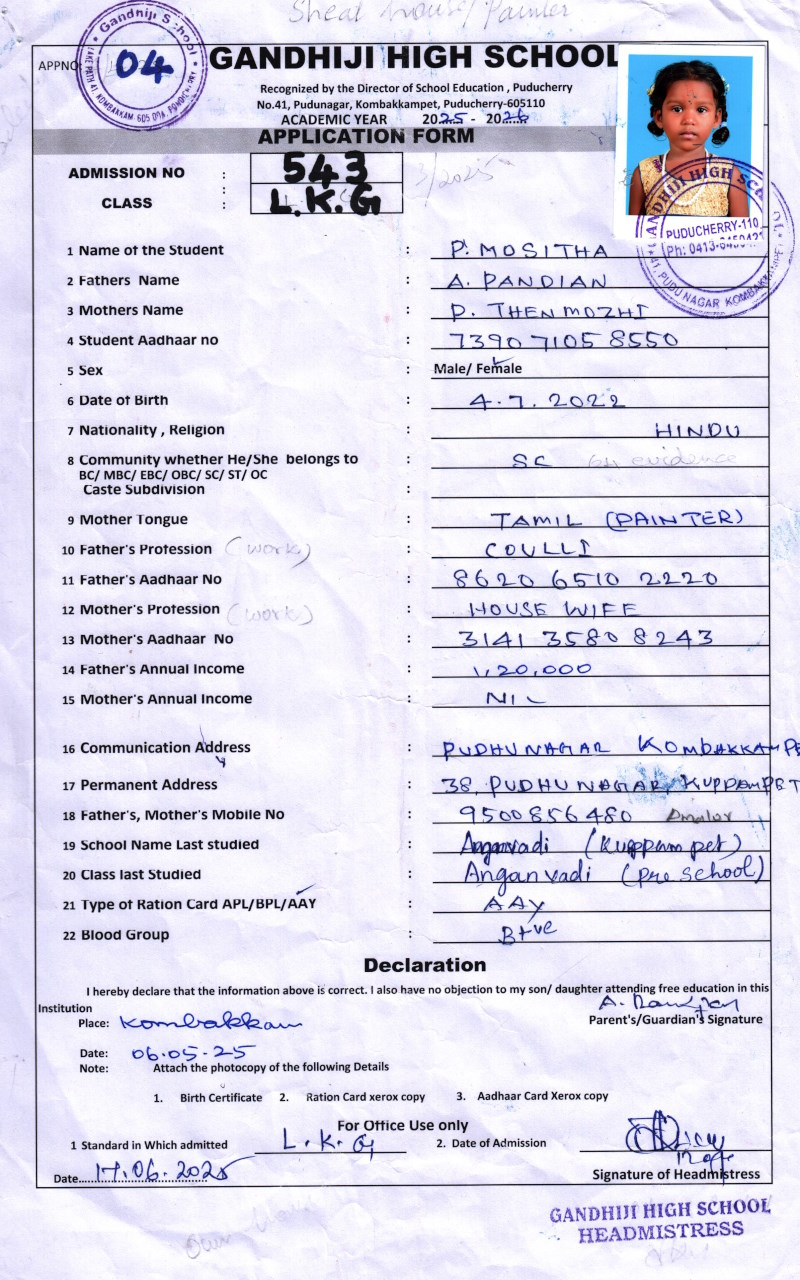 Sheat house/Painter
Gandhiji School
APPNO 04 GANDHIJI HIGH SCHOOL
Recognized by the Director of School Education , Puducherry
No.41, Pudunagar, Kombakkampet, Puducherry-605110
ACADEMIC YEAR 2025 - 2026
APPLICATION FORM
ADMISSION NO : 543
CLASS : L.K.G
GANDHIJI HIGH SCHOOL
PUDUCHERRY-110
41, PUDU NAGAR
1 Name of the Student : P. MOSITHA
2 Fathers Name : A. PANDIAN
3 Mothers Name : P. THENMOZHI
4 Student Aadhaar no : 7390 7105 8550
5 Sex : Male/ Female
6 Date of Birth : 4.7.2022
7 Nationality , Religion : HINDU
8 Community whether He/She belongs to : SC evidence
BC/ MBC/ EBC/ OBC/ SC/ ST/ OC
Caste Subdivision :
9 Mother Tongue : TAMIL (PAINTER)
10 Father's Profession (work) : COULLI
11 Father's Aadhaar No : 8620 6510 2220
12 Mother's Profession (work) : HOUSE WIFE
13 Mother's Aadhaar No : 3141 3580 8243
14 Father's Annual Income : 1,20,000
15 Mother's Annual Income : NIL
16 Communication Address : PUDHU NAGAR KOMBAKKAMPE
17 Permanent Address : 38, PUDHU NAGAR, KUPPAMPET
18 Father's, Mother's Mobile No : 9500856480
19 School Name Last studied : Anganvadi (Kuppam pet)
20 Class last Studied : Anganvadi (pre school)
21 Type of Ration Card APL/BPL/AAY : AAy
22 Blood Group : B+ve
Declaration
I hereby declare that the information above is correct. I also have no objection to my son/ daughter attending free education in this
Institution
A. Pandian
Place: Kombakkam Parent's/Guardian's Signature
Date: 06.05.25
Note: Attach the photocopy of the following Details
1. Birth Certificate 2. Ration Card xerox copy 3. Aadhaar Card Xerox copy
For Office Use only
1 Standard in Which admitted L.K.G 2. Date of Admission
Date 17.06.2025 Signature of Headmistress
GANDHIJI HIGH SCHOOL
HEADMISTRESS